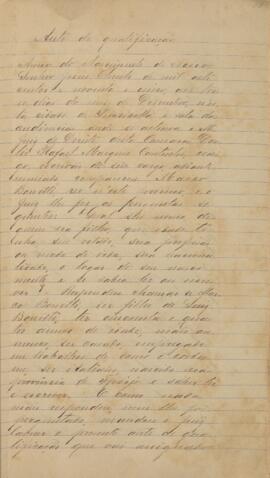 Auto de qualificação
Anno do Nascimento de Nosso
Senhor Jesus Christo de mil oito
centos e noventa e cinco, aos tres
dias do mez de Dezembro, nes
ta cidade de Piracicaba e sala das
audiencias onde se achava o M.
Juiz de Direito desta Comarca Dou
tor Rafael Marques Coutinho, com
migo escrivão de seu cargo adiante
nomeado compareceu Marco
Bonetti, reo neste processo e o
Juiz lhe fez as perguntas se
guintes: Qual seu nome, de
quem era filho, que idade ti
nha, seu estado, sua profissão
ou modo de vida, sua naciona
lidade, o logar de seu nasci
mento e se sabia ler ou escre
ver? Respondeu chamar-se Mar
co Bonetti, ser filho de Luiz
Bonetti, ter cincoenta e quatro
annos de idade, mais ou
menos, ser casado, empregado
em trabalhos de
ser italiano, nascido na
provincia de e saber ler
e escrever. E como nada
mais respondeu, nem lhe foi
perguntado, mandou o juiz
lavrar o presente auto de qua
lificação que vai assignado